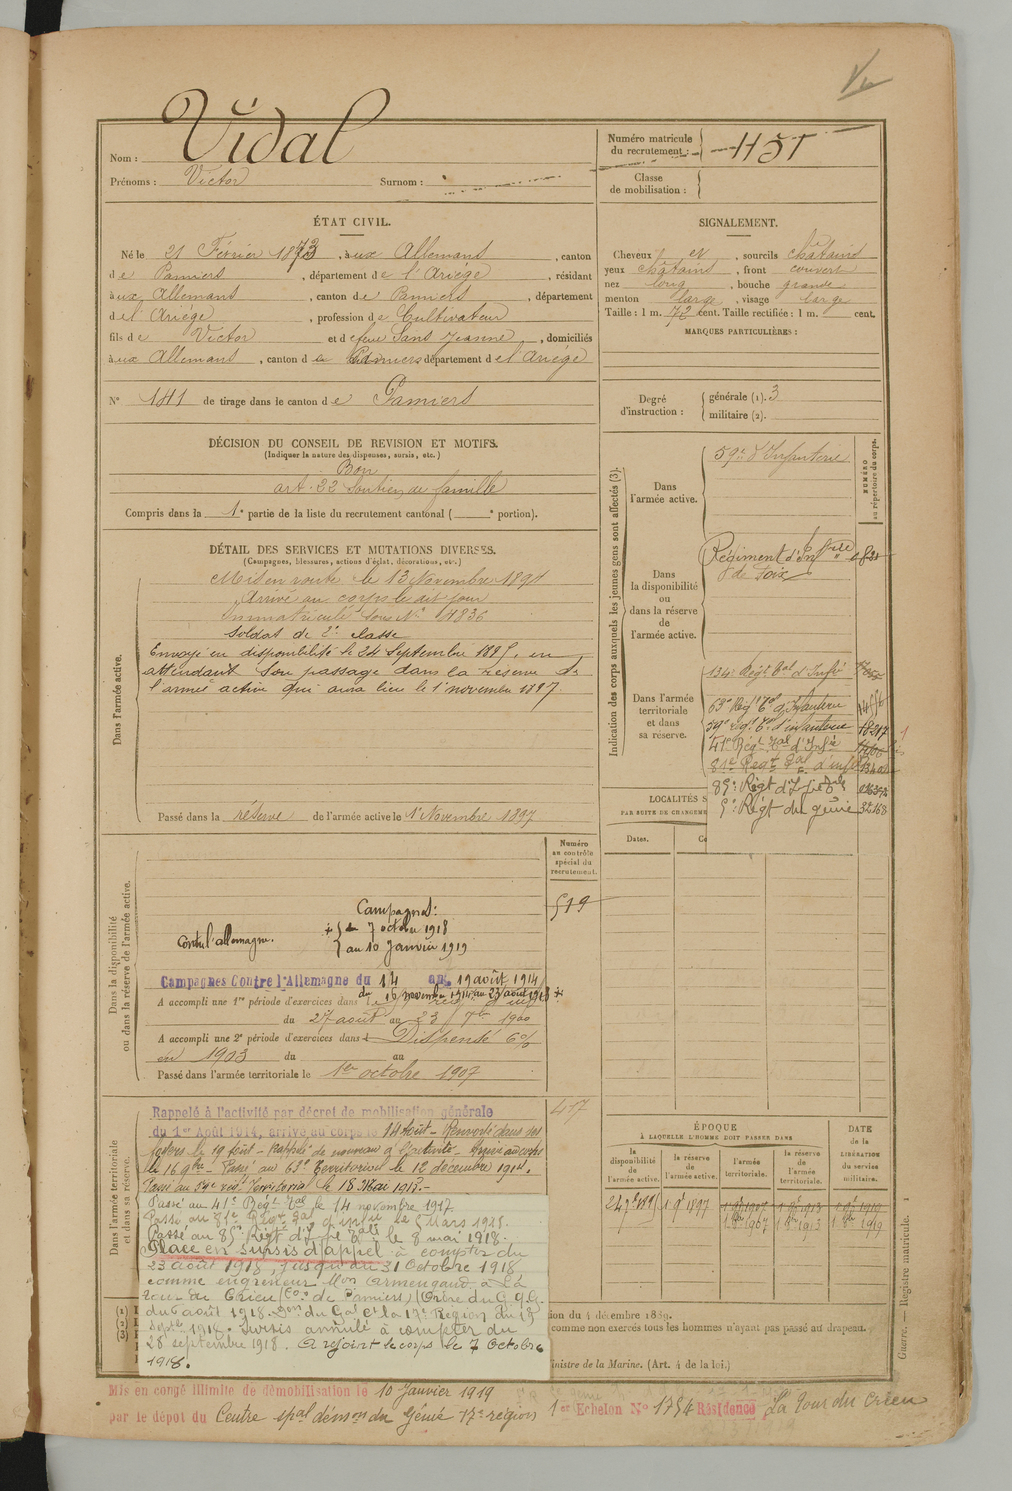 Vidal
Nom :
Prénoms : Victor Surnom :
Numéro matricule du recrutement : 1151
Classe de mobilisation :
ÉTAT CIVIL.
Né le 21 Février 1873, à ux Allemans, canton
de Pamiers, département de l'Ariège, résidant
à ux Allemans, canton de Pamiers, département
de l'Ariège, profession de Cultivateur
fils de Victor et de feue Sans Jeanne, domiciliés
à ux Allemans, canton de Pamiers département de l'Ariège
N° 181 de tirage dans le canton de Pamiers
DÉCISION DU CONSEIL DE REVISION ET MOTIFS.
(Indiquer la nature des dispenses, sursis, etc.)
Bon
art. 22 Soutien de famille
Compris dans la 1e partie de la liste du recrutement cantonal ( e portion).
SIGNALEMENT.
Cheveux et, sourcils châtains
yeux châtains, front couvert
nez long, bouche grande
menton large, visage large
Taille : 1 m. 72 cent. Taille rectifiée : 1 m. cent.
MARQUES PARTICULIÈRES :
Degré d'instruction : générale (1). 3
militaire (2).
DÉTAIL DES SERVICES ET MUTATIONS DIVERSES.
(Campagnes, blessures, actions d'éclat, décorations, etc.)
Dans l'armée active.
Mis en route le 13 Novembre 1891
Arrivé au corps le dit jour
immatriculé sous N° 4836
Soldat de 2e classe
Envoyé en disponibilité le 24 Septembre 1895, en
attendant son passage dans la réserve de
l'armée active qui aura lieu le 1er novembre 1897.
Passé dans la réserve de l'armée active le 1er Novembre 1897
Indication des corps auxquels les jeunes gens sont affectés (3).
NUMÉRO au répertoire du corps.
Dans l'armée active.
59e d'Infanterie
Dans la disponibilité ou dans la réserve de l'armée active.
Régiment d'Inf
de Foix
Dans l'armée territoriale et dans sa réserve.
134e Régt Tal d'Infie
63e Régt Tal d'Infanterie
59e régt Tal d'infanterie 18217
41e Régt Tal d'Infie
81e Régt Tal d'infie
85e Régt d'Infie Tale
5e Régt du génie 32168
LOCALITÉS S
PAR SUITE DE CHANGEME
Dates.
Dans la disponibilité ou dans la réserve de l'armée active.
Numéro au contrôle spécial du recrutement.
519
Campagnes :
Contre l'allemagne. + du 7 octobre 1918
au 10 Janvier 1919
Campagnes Contre l'Allemagne du 14 au 19 août 1914
du 16 novembre 1914 au 23 août 1918 +
A accompli une 1re période d'exercices dans le
du 27 août au 23 7bre 1900
A accompli une 2e période d'exercices dans Dispensé 6%
en 1903 du au
Passé dans l'armée territoriale le 1er octobre 1907
Dans l'armée territoriale et dans sa réserve.
417
Rappelé à l'activité par décret de mobilisation générale
du 1er Août 1914, arrivé au corps le 14 Août - Renvoyé dans ses
foyers le 19 Août - Rappelé de nouveau à l'activité - Arrivé au corps
le 16 9bre - Passé au 63e Territorial le 12 décembre 1914.
Passé au 59e régt Territorial le 18 Mai 1915.
Passé au 41e Régt Tal le 14 novembre 1917
Passé au 81e Régt Tal d'infie le 5 Mars 1918.
Passé au 85e Régt d'Infie Tale le 8 mai 1918.
Placé en sursis d'appel à compter du
23 août 1918, jusqu'au 31 Octobre 1918
comme engreneur Mon Armengaud à La
tour du Crieu (Con de Pamiers) (Ordre du G.Q.G.
du 6 août 1918. Don du Gal Ct la 17e Région du 18
Septe 1918. Sursis annulé à compter du
28 septembre 1918. A rejoint le corps le 7 Octobre
1918.
ÉPOQUE
À LAQUELLE L'HOMME DOIT PASSER DANS
la disponibilité de l'armée active.
la réserve de l'armée active.
l'armée territoriale.
la réserve de l'armée territoriale.
DATE de la LIBÉRATION du service militaire.
24 7bre 1895 1 9bre 1897 1 8bre 1907 1 8bre 1913 1 8bre 1919
1 8bre 1907 1 8bre 1913 1 8bre 1919
(1)
(2)
(3)
ion du 4 décembre 1889.
comme non exercés tous les hommes n'ayant pas passé au drapeau.
inistre de la Marine. (Art. 4 de la loi.)
Guerre. — Registre matricule. 1
Mis en congé illimité de démobilisation le 10 Janvier 1919
par le dépôt du Centre spal démon du Génie 17e région 1er Echelon N° 1754 Résidence La Tour du Crieu